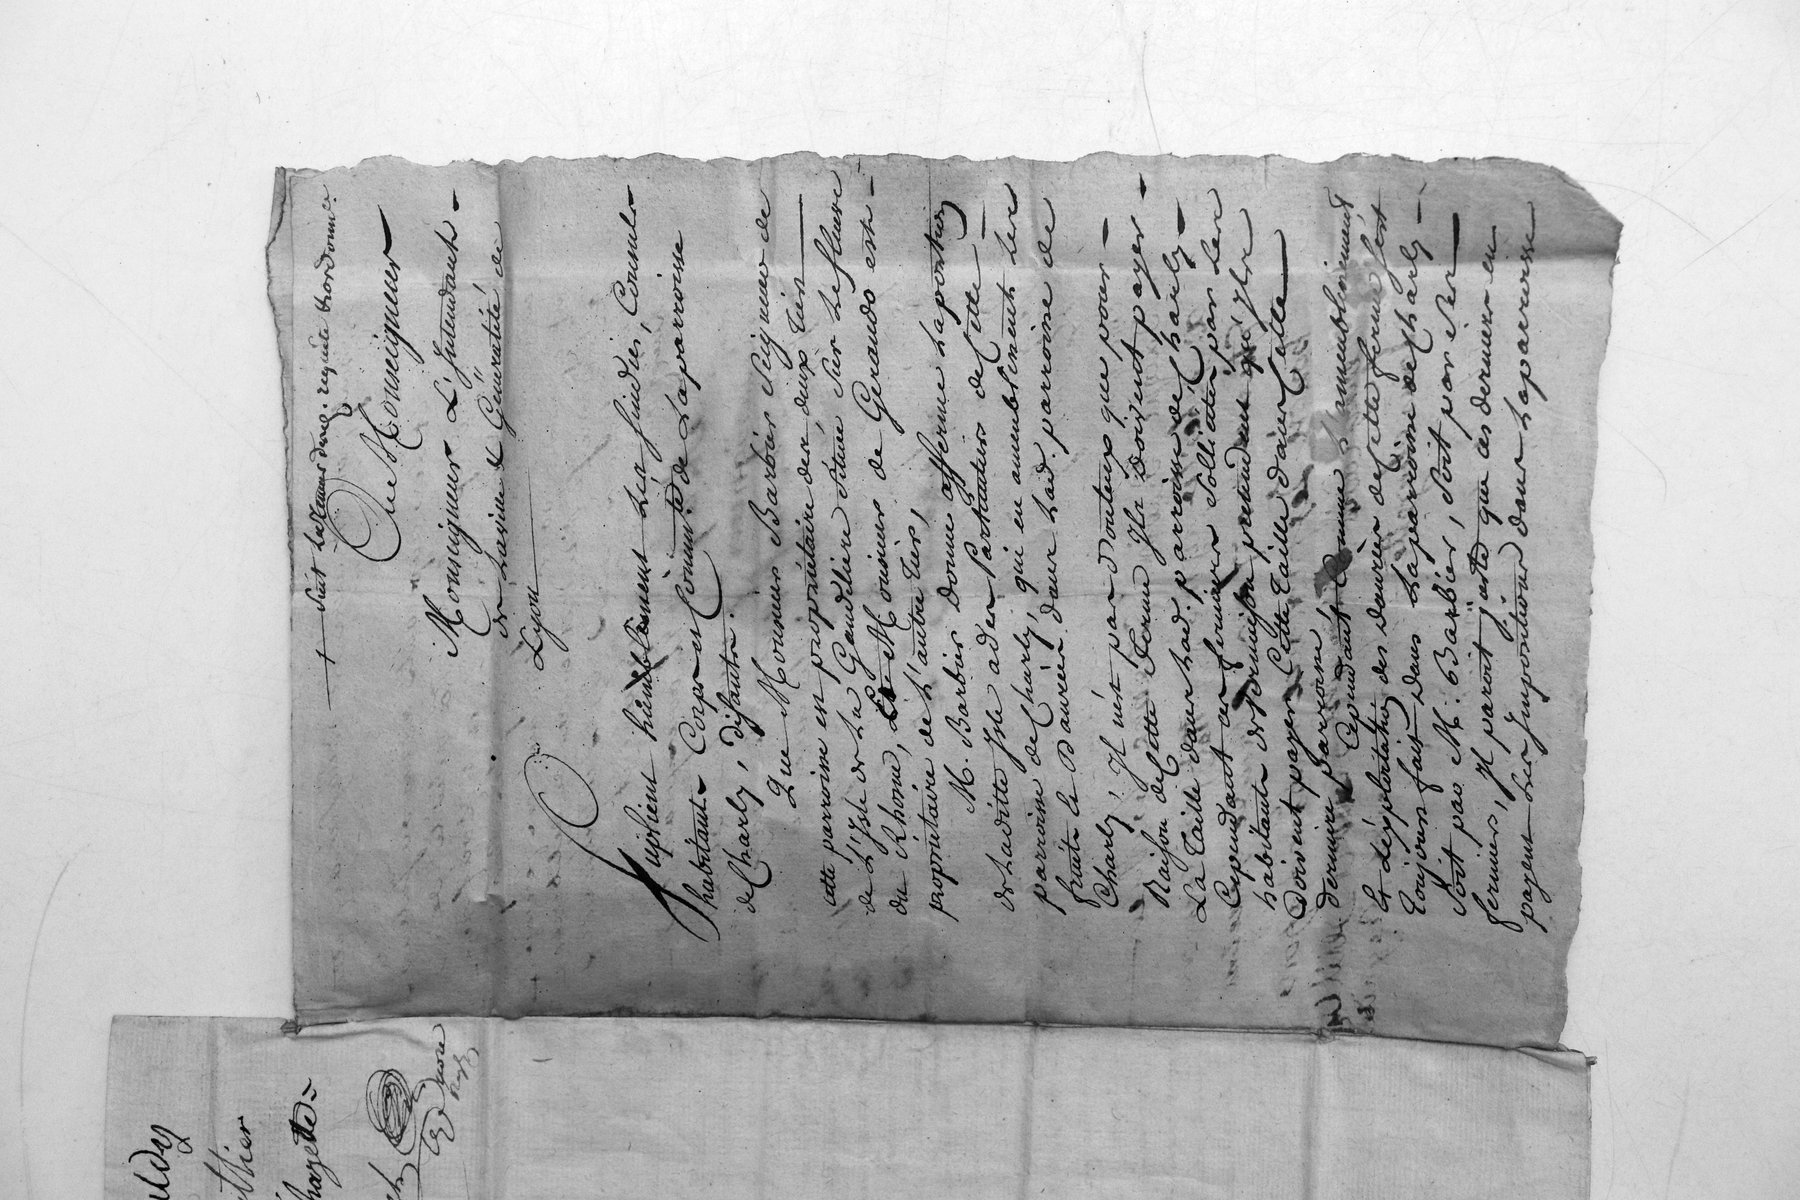 Suit La Teneur desd. requete & ordonnce
A Monseigneur
Monseigneur L'Intendant
de La ville & Généralité de
Lyon
Suplient humblement Les sindics, Consuls
habitants Corps et Commté de La parroisse
de Charly, disants:
Que Monsieur Barbier Seigneur de
cette parroisse est propriétaire des deux tiers
de L'Isle de La Gaudiliere située sur Le fleuve
du Rhone, & Monsieur de Gerando est
propriétaire de L'autre tiers,
M. Barbier donne afferme La portion
de Laditte Isle a des particuliers de Cette
parroisse de Charly, qui en ameublissent Les
fruits & Danrées dans Lad. parroisse de
Charly, Il n'est pas douteux que pour
Raison de Cette ferme Ils doivent payer
La Taille dans Lad. parroisse de Charly
Cependant ces fermiers sollicités par Les
habitants de prétendent qu'Ils
doivent payer Cette Taille dans Cette
derniere parroisse,
Cependant Comme L'ameublissement
& L'exploitation des danrées de Cette ferme s'est
toujours fait dans La parroisse de Charly
soit par M. Barbier, soit par ses
fermiers, Il paroit juste que ces derniers en
payent Les Impositions dans La parroisse
thier